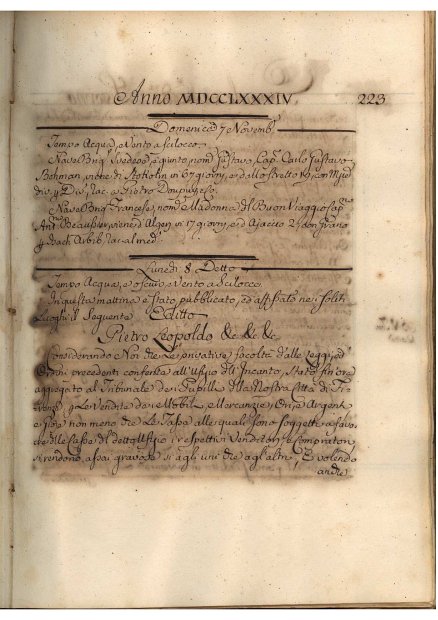 Anno MDCCLXXXIV. 223
Domenica 7 Novemb.
Tempo Acqua, e Vento a Scilocco.
Nave Bng Svedese, è giunto, nom Gustavo, Cap. Carlo Gustavo
Bohman, viene di Stokolm in 67 giorni, e dallo Svelto 19, con
div.
Nave Bng Francese, nom. Madonna del Buon Viaggio, Cap.
Ant. Beaussier, viene d'Algeri in 17 giorni, e d'Ajaccio 2, con grano
Lunedì 8 Detto
Tempo Acqua, e oscuro, e Vento a Scilocco.
In questa mattina è stato pubblicato, ed affissato nei soliti
Luoghi il Seguente Editto
Pietro Leopoldo &c &c &c
Considerando Noi che Le privative facoltà dalle Leggi, ed
Ordini precedenti conferite all'Ufizio dell'Incanto, Stato finora
aggregato al Tribunale dei Pupilli della Nostra Città di Fi
renze, p Le Vendite dei Mobili, e Mercanzie, Ori, e Argenti
e Gioie non meno che Le Tasse alle quali sono soggetti a favo
re delle Casse del detto Ufizio i respettivi Venditori, e Compratori
si rendono assai gravose sì agli uni che agli altri, E volendo
anche